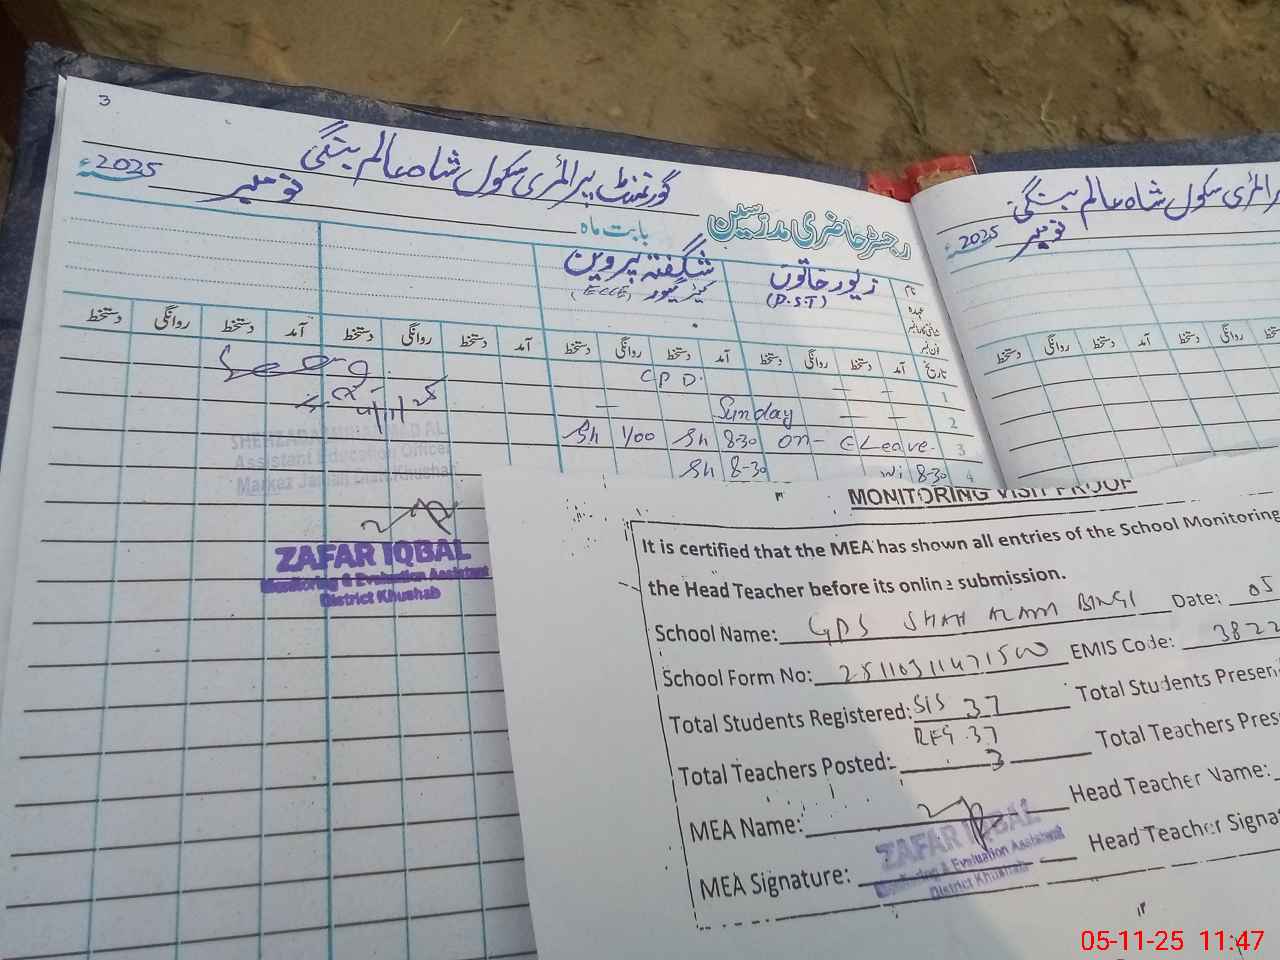 3
گورنمنٹ پرائمری سکول شاہ عالم بینگی
رجسٹر حاضری مدرسین بابت ماہ نومبر 2025ء
نام زیور خاتون شگفتہ پروین
عہدہ (P.S.T) کیئر گیور (ECCE)
تاریخ آمد دستخط روانگی دستخط آمد دستخط روانگی دستخط آمد دستخط روانگی دستخط آمد دستخط روانگی دستخط
1 — — CPD.
2 — — Sunday —
3 on - C Leave. 8-30 Sh 1/00 Sh
4 8-30 8-30 Sh
Assistant Education Officer
ZAFAR IQBAL
Monitoring & Evaluation Assistant
District Khushab
پرائمری سکول شاہ عالم بینگی
نومبر 2025
دستخط روانگی دستخط آمد دستخط روانگی
MONITORING VISIT PROOF
It is certified that the MEA has shown all entries of the School Monitoring
the Head Teacher before its online submission.
School Name: GPS SHAH ALAM BINGI Date: 05
School Form No: EMIS Code: 3822
Total Students Registered: SIS 37 Total Students Present
REG 37
Total Teachers Posted: 3 Total Teachers Pres
MEA Name: Head Teacher Name:
MEA Signature: Head Teacher Signa
ZAFAR IQBAL
Monitoring & Evaluation Assistant
District Khushab
05-11-25 11:47